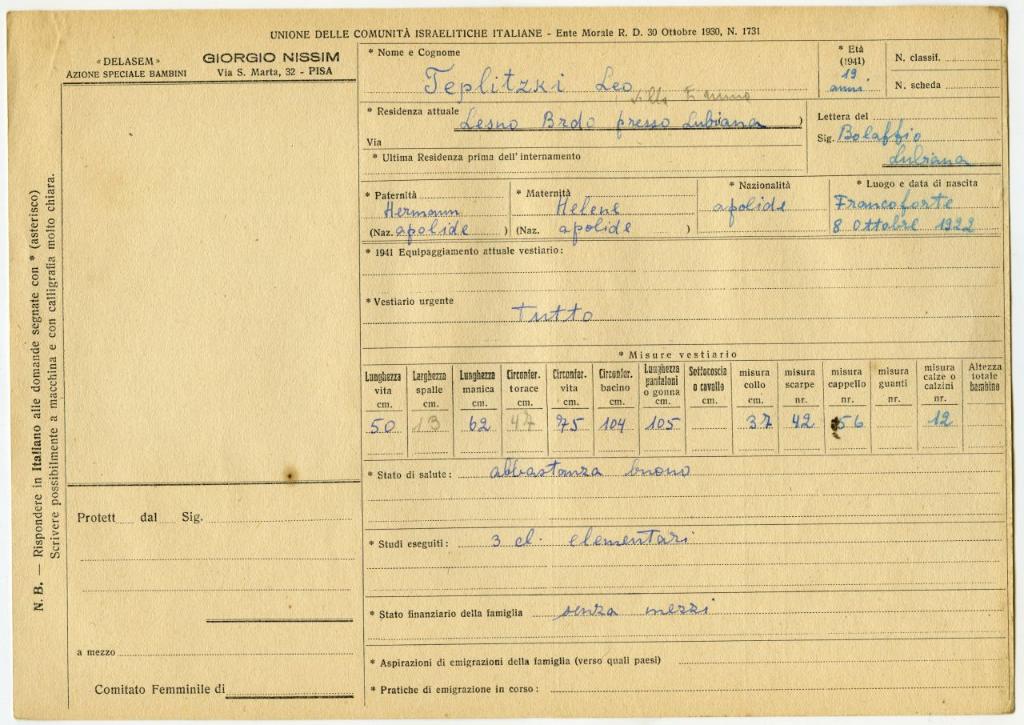 UNIONE DELLE COMUNITÀ ISRAELITICHE ITALIANE - Ente Morale R. D. 30 Ottobre 1930, N. 1731
« DELASEM »
AZIONE SPECIALE BAMBINI
GIORGIO NISSIM
Via S. Marta, 32 - PISA
N. B. — Rispondere in Italiano alle domande segnate con * (asterisco)
Scrivere possibilmente a macchina e con calligrafia molto chiara.
Protett dal Sig.
a mezzo
Comitato Femminile di
* Nome e Cognome
Teplitzki Leo
* Età
(1941)
19
anni
N. classif.
N. scheda
* Residenza attuale Lesno Brdo presso Lubiana )
Via
* Ultima Residenza prima dell'internamento
Lettera del
Sig. Bolaffio
Lubiana
* Paternità
Hermann
(Naz. apolide )
* Maternità
Helene
(Naz. apolide )
* Nazionalità
apolide
* Luogo e data di nascita
Francoforte
8 Ottobre 1922
* 1941 Equipaggiamento attuale vestiario:
* Vestiario urgente
Tutto
* Misure vestiario
Lunghezza vita cm. 50
Larghezza spalle cm. 13
Lunghezza manica cm. 62
Circonfer. torace cm. 47
Circonfer. vita cm. 75
Circonfer. bacino cm. 104
Lunghezza pantaloni o gonna cm. 105
Sottocoscia o cavallo cm.
misura collo cm. 37
misura scarpe nr. 42
misura cappello nr. 56
misura guanti nr.
misura calze o calzini nr. 12
Altezza totale bambino
* Stato di salute: abbastanza buono
* Studi eseguiti: 3 cl. elementari
* Stato finanziario della famiglia senza mezzi
* Aspirazioni di emigrazioni della famiglia (verso quali paesi)
* Pratiche di emigrazione in corso: